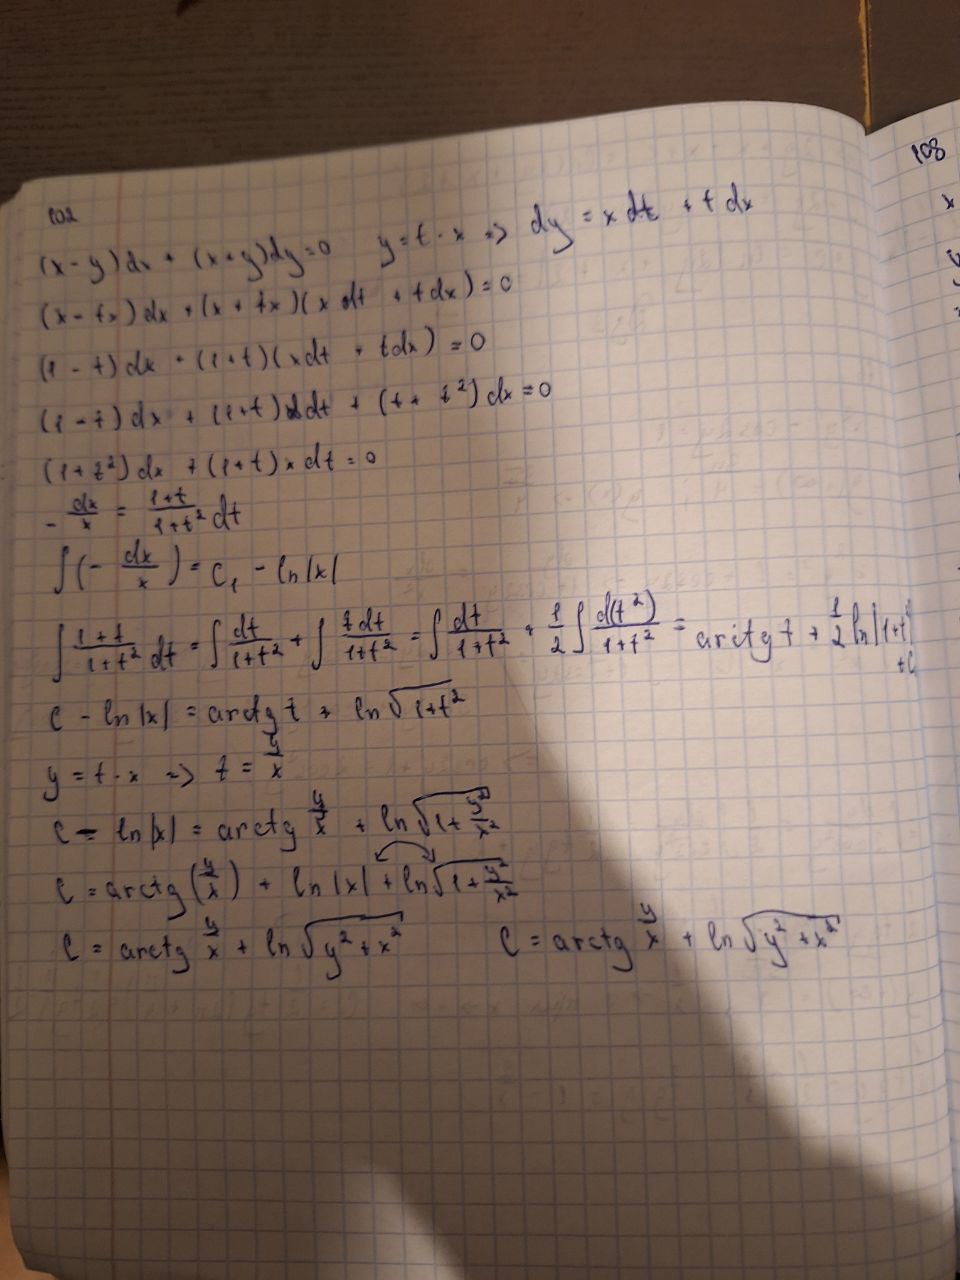 102
(x - y)dx + (x+y)dy=0 y = t · x => dy = x dt + t dx
(x - tx)dx + (x + tx)(x dt + t dx) = 0
(1 - t) dx + (1+t)(xdt + tdx) = 0
(1 - t) dx + (1+t)xdt + (t + t²) dx = 0
(1+t²) dx + (1+t) x dt = 0
- dx/x = (1+t)/(1+t²) dt
∫(- dx/x) = C₁ - ln|x|
∫ (1+t)/(1+t²) dt = ∫ dt/(1+t²) + ∫ t dt/(1+t²) = ∫ dt/(1+t²) + 1/2 ∫ d(t²)/(1+t²) = arctg t + 1/2 ln|1+t²| + C
C - ln|x| = arctg t + ln√(1+t²)
y = t · x => t = y/x
C - ln|x| = arctg y/x + ln√(1+y²/x²)
C = arctg(y/x) + ln|x| + ln√(1+y²/x²)
C = arctg y/x + ln√(y²+x²) C = arctg y/x + ln√(y²+x²)
108
x